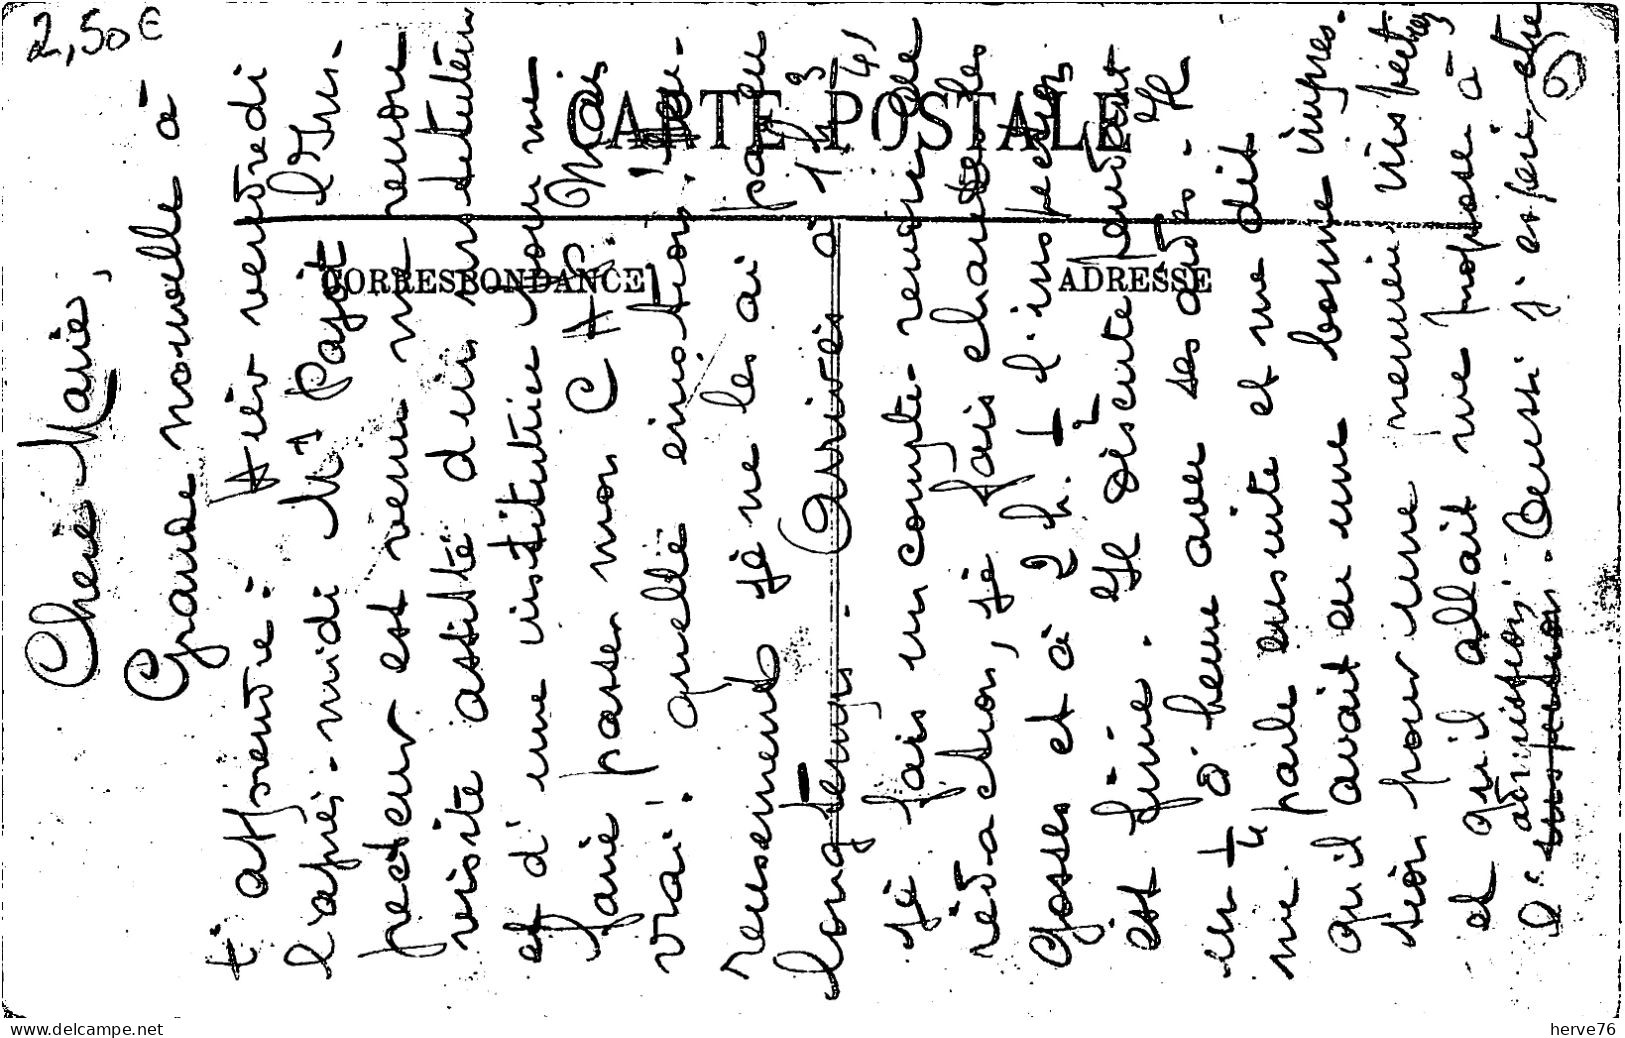 2,50 €
CARTE POSTALE
CORRESPONDANCE
ADRESSE
Chère Marie,
Grande nouvelle à
t'apprendre : Hier vendredi
l'après-midi Mr Pajot l'Ins-
pecteur est venu me revoir
visite assisté d'un instituteur
et d'une institutrice pour me
faire passer mon C A P. Mais
vrai ! quelle émotion. Heu-
reusement je ne les ai pas eu
longtemps. Arrivés à 1 h 3/4,
je fais un compte-rendu de
rédaction, je fais chanter les
gosses et à 2 h. 1/2 l'inspection
est finie. Il discute pendant
1/2 heure avec ses adj. Il
me parle ensuite et me dit
qu'il avait eu une bonne impres-
sion pour une première inspection
et qu'il allait me proposer à
l'admission. Aussi j'espère être
www.delcampe.net
herve76